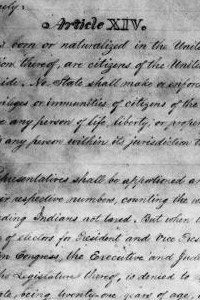 ely:
Article XIV.
s born or naturalized in the Unite
tion thereof, are citizens of the Unite
side. No State shall make or enforc
leges or immunities of citizens of the
e any person of life, liberty, or proper
any person within its jurisdiction t
presentatives shall be apportioned a
ir respective numbers, counting the w
ding Indians not taxed. But when t
of electors for President and Vice Pres
in Congress, the Executive and Judic
the Legislature thereof, is denied to
ate, being twenty-one years of age, a